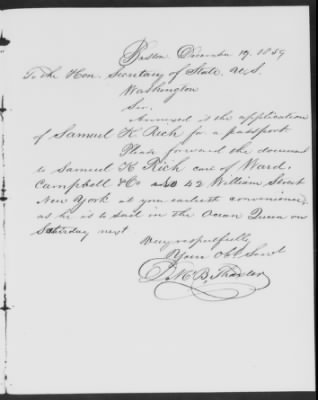 Boston December 19. 1859
To the Hon. Secretary of State U.S.
Washington
Sir.
Annexed is the application
of Samuel K. Rich for a passport
Please forward the document
to Samuel K Rich care of Ward.
Campbell & Co No 42 William Street
New York at your earliest convenience
as he is to sail in the Ocean Queen on
Saturday next
Very respectfully
Your Obt Servt